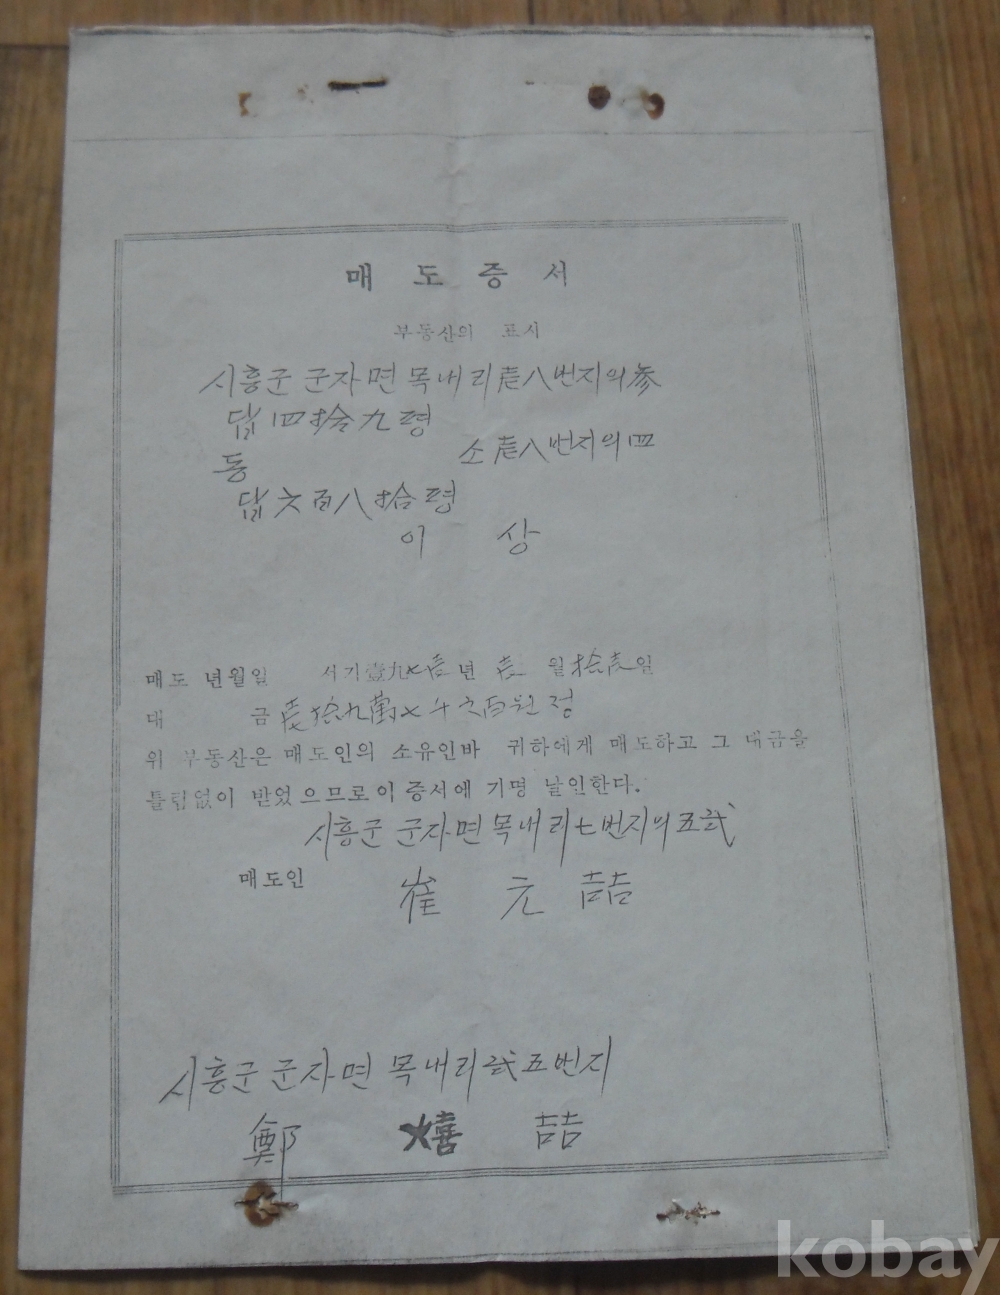 매 도 증 서
부동산의 표시
시흥군 군자면 목내리 壱八번지의 参
답 四拾九평
동 소 壱八번지의 四
답 六百八拾평
이 상
매도 년월일 서기 壹九七壱年 壱 월 拾壱일
대 금 壱拾九萬七千六百원 정
위 부동산은 매도인의 소유인바 귀하에게 매도하고 그 대금을
틀림없이 받었으므로 이 증서에 기명 날인한다.
시흥군 군자면 목내리 七번지의 五弐
매도인 崔 元 喆
시흥군 군자면 목내리 弐五번지
鄭 嬉 喆
kobay